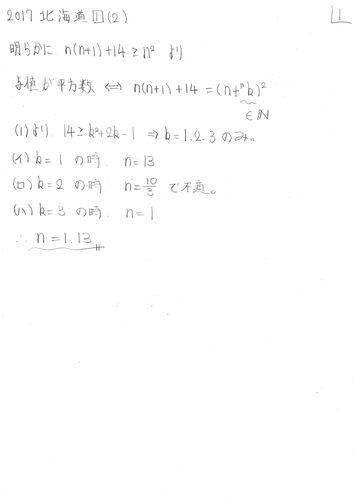 2017 北海道 1 (2)
1
明らかに n(n+1)+14 ≥ n² より
与値が平方数 ⇔ n(n+1)+14 = (n+k)²
∈ℕ
(1)より. 14 ≥ k²+2k-1 ⇒ k=1.2.3 のみ。
(イ) k=1 の時. n=13
(ロ) k=2 の時 n=10/3 で不適。
(ハ) k=3 の時. n=1
∴ n=1.13